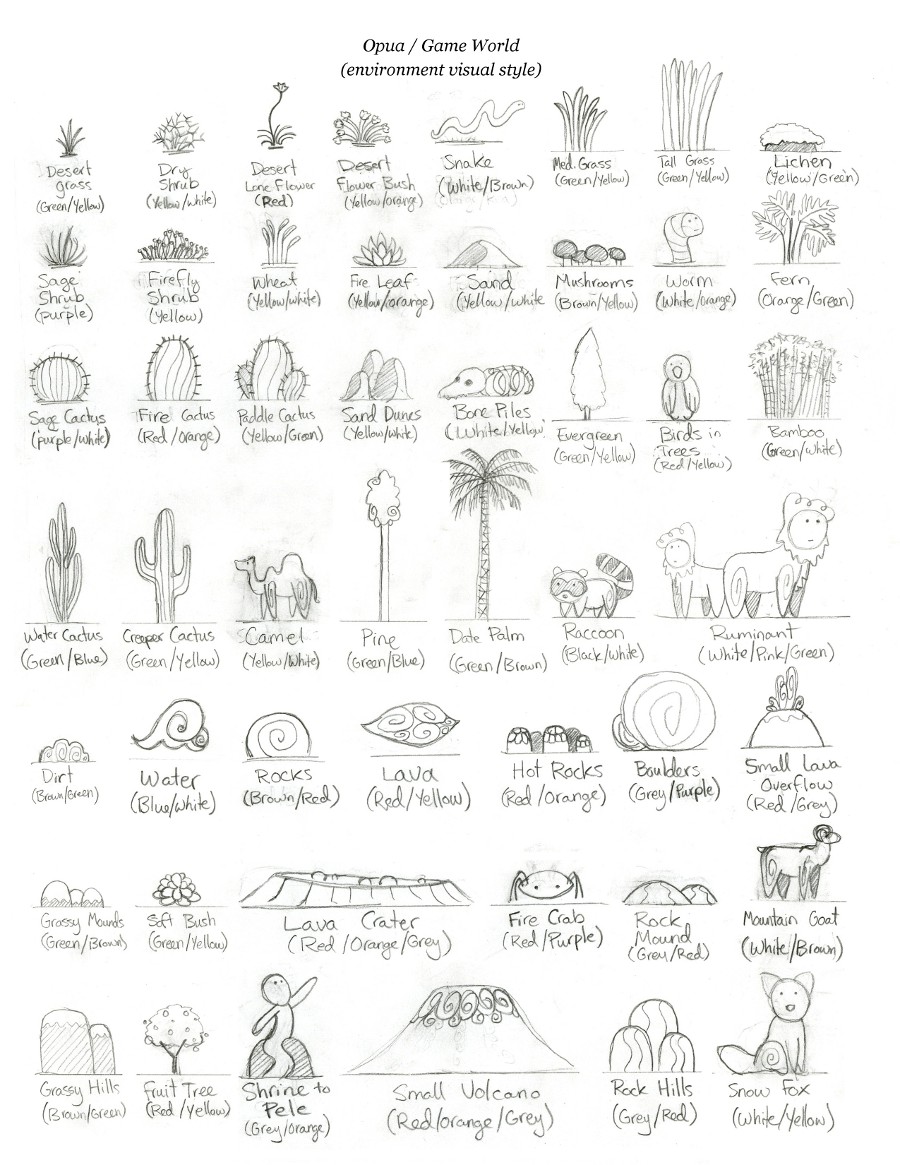 Opua / Game World
(environment visual style)
Desert
grass
(Green/Yellow)
Dry
Shrub
(Yellow/White)
Desert
Lone Flower
(Red)
Desert
Flower Bush
(Yellow/Orange)
Snake
(White/Brown)
Med. Grass
(Green/Yellow)
Tall Grass
(Green/Yellow)
Lichen
(Yellow/Green)
Sage
Shrub
(purple)
Firefly
Shrub
(Yellow)
Wheat
(Yellow/White)
Fire Leaf
(Yellow/Orange)
Sand
(Yellow/White
Mushrooms
(Brown/Yellow)
Worm
(White/Orange)
Fern
(Orange/Green)
Sage Cactus
(Purple/White)
Fire Cactus
(Red/Orange)
Paddle Cactus
(Yellow/Green)
Sand Dunes
(Yellow/White)
Bone Piles
(White/Yellow)
Evergreen
(Green/Yellow)
Birds in
Trees
(Red/Yellow)
Bamboo
(Green/White)
Water Cactus
(Green/Blue)
Creeper Cactus
(Green/Yellow)
Camel
(Yellow/White)
Pine
(Green/Blue)
Date Palm
(Green/Brown)
Raccoon
(Black/White)
Ruminant
(White/Pink/Green)
Dirt
(Brown/Green)
Water
(Blue/White)
Rocks
(Brown/Red)
Lava
(Red/Yellow)
Hot Rocks
(Red/Orange)
Boulders
(Grey/Purple)
Small Lava
Overflow
(Red/Grey)
Grassy Mounds
(Green/Brown)
Soft Bush
(Green/Yellow)
Lava Crater
(Red/Orange/Grey)
Fire Crab
(Red/Purple)
Rock
Mound
(Grey/Red)
Mountain Goat
(White/Brown)
Grassy Hills
(Brown/Green)
Fruit Tree
(Red/Yellow)
Shrine to
Pele
(Grey/Orange)
Small Volcano
(Red/Orange/Grey)
Rock Hills
(Grey/Red)
Snow Fox
(White/Yellow)